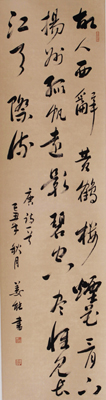 故人西辭黃鶴樓煙花三月下
揚州孤帆遠影碧空尽惟見長
江天際流
唐詩一首
丑年秋月 姜 書